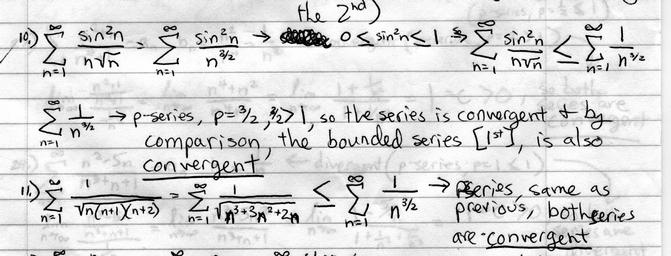 the 2nd)
10.) ∞Σn=1 sin²n/n√n = ∞Σn=1 sin²n/n^3/2 → 0 ≤ sin²n ≤ 1 → ∞Σn=1 sin²n/n√n ≤ ∞Σn=1 1/n^3/2
∞Σn=1 1/n^3/2 → p-series, p=3/2, 3/2>1, so the series is convergent & by
comparison, the bounded series [1st], is also
convergent
11.) ∞Σn=1 1/√n(n+1)(n+2) = ∞Σn=1 1/√n³+3n²+2n ≤ ∞Σn=1 1/n^3/2 → pseries, same as
previous, both series
are convergent